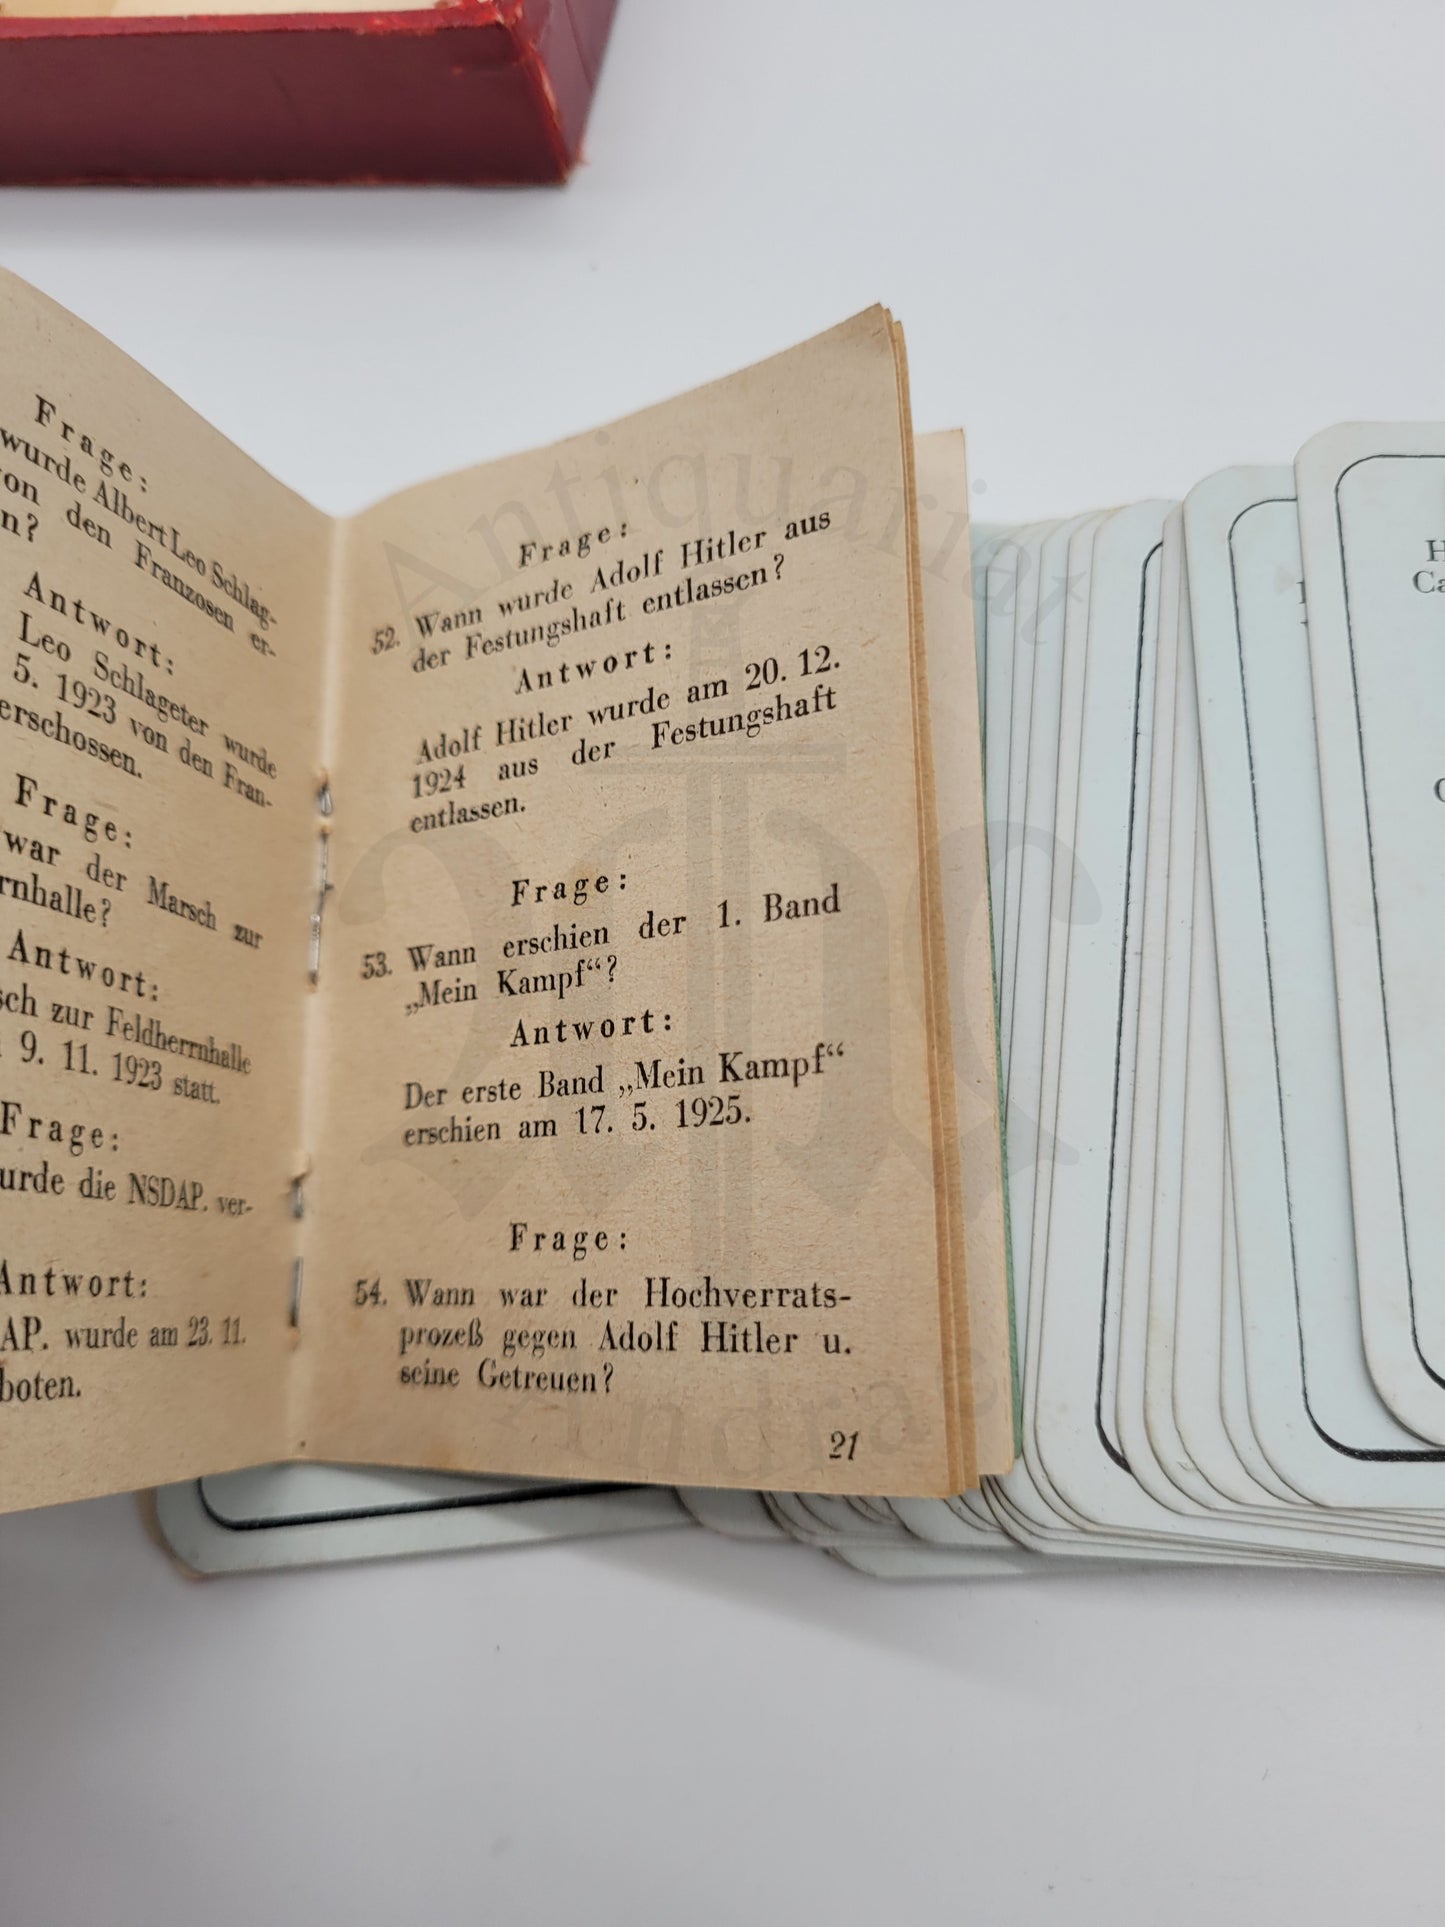 Frage:
wurde Albert Leo Schlag-
von den Franzosen er-
n?
Antwort:
Leo Schlageter wurde
5. 1923 von den Fran-
erschossen.
Frage:
war der Marsch zur
rnhalle?
Antwort:
sch zur Feldherrnhalle
9. 11. 1923 statt.
Frage:
urde die NSDAP. ver-
Antwort:
AP. wurde am 23. 11.
boten.
Frage:
52. Wann wurde Adolf Hitler aus
der Festungshaft entlassen?
Antwort:
Adolf Hitler wurde am 20. 12.
1924 aus der Festungshaft
entlassen.
Frage:
53. Wann erschien der 1. Band
„Mein Kampf“?
Antwort:
Der erste Band „Mein Kampf“
erschien am 17. 5. 1925.
Frage:
54. Wann war der Hochverrats-
prozeß gegen Adolf Hitler u.
seine Getreuen?
21
H
Ca
Antiquariat
Andreas